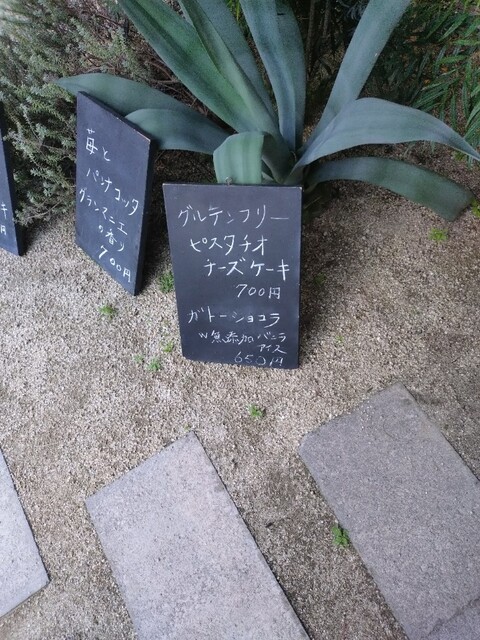 苺と
パンナコッタ
グランマニエ
の香り
700円
グルテンフリー
ピスタチオ
チーズケーキ
700円
ガトーショコラ
w無添加バニラ
アイス
650円
キ
円